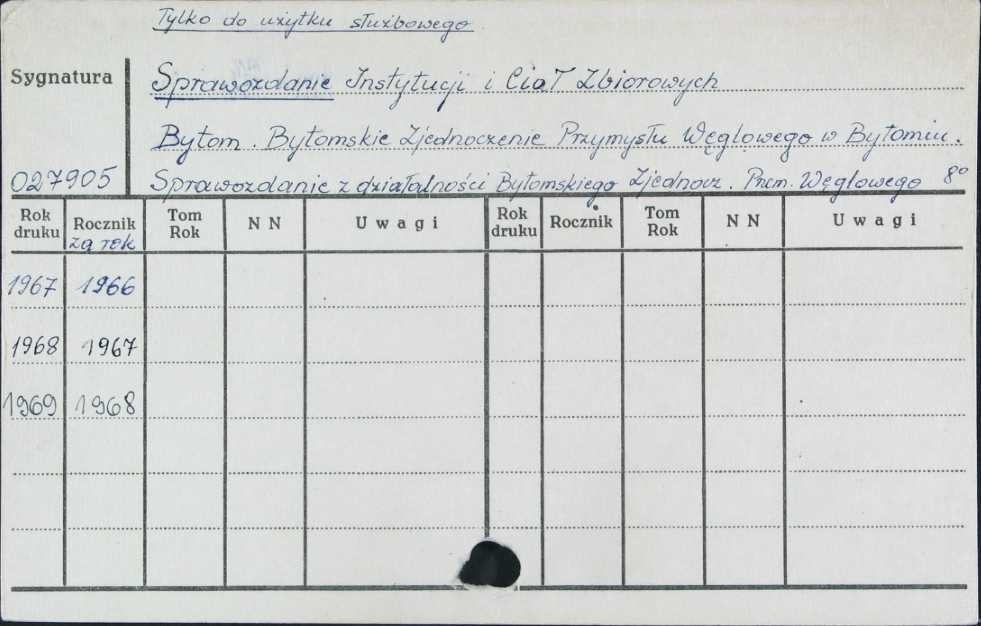 Tylko do użytku służbowego
Sygnatura Sprawozdanie Instytucji i Ciał Zbiorowych
Bytom. Bytomskie Zjednoczenie Przemysłu Węglowego w Bytomiu.
027905 Sprawozdanie z działalności Bytomskiego Zjednocz. Przem. Węglowego 8°
Rok druku Rocznik za rok Tom Rok NN Uwagi Rok druku Rocznik Tom Rok NN Uwagi
1967 1966
1968 1967
1969 1968